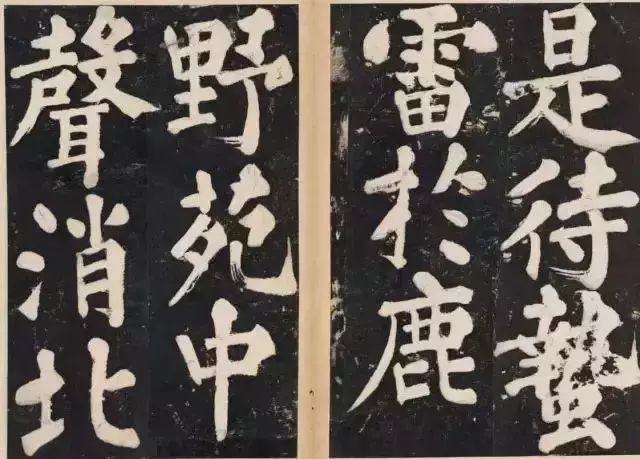 是待蟄
雷於鹿
野苑中
聲消北